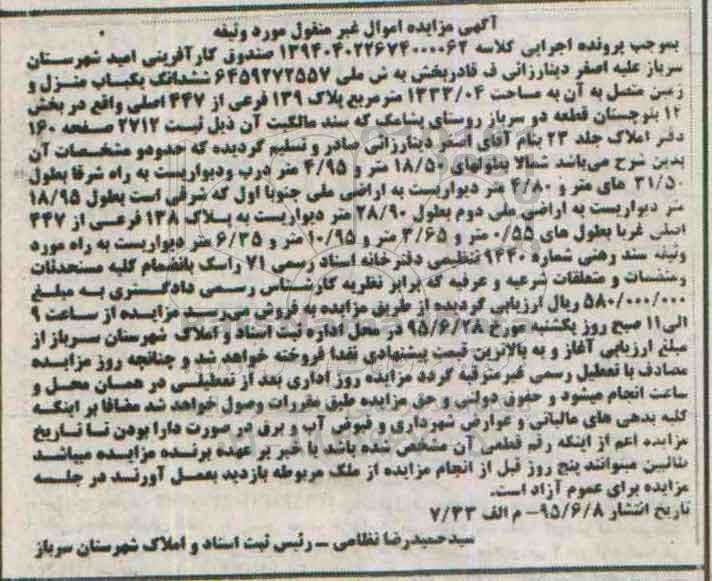 آگهی مزایده اموال غیر منقول مورد وثیقه
بموجب پرونده اجرایی کلاسه ۱۳۹۴۰۴۰۲۲۶۷۴۰۰۰۰۶۲ صندوق کارآفرینی امید شهرستان
سرباز علیه اصغر دینارزائی ف قادربخش به ش ملی ۶۴۵۹۲۷۲۵۵۷ ششدانگ یکباب منزل و
زمین متصل به آن به مساحت ۱۳۳۳/۰۴ مترمربع پلاک ۱۳۹ فرعی از ۴۴۷ اصلی واقع در بخش
۱۲ بلوچستان قطعه دو سرباز روستای پشامک که سند مالکیت آن ذیل ثبت ۲۷۱۲ صفحه ۱۶۰
دفتر املاک جلد ۲۳ بنام آقای اصغر دینارزائی صادر و تسلیم گردیده که حدودو مشخصات آن
بدین شرح می‌باشد شمالا بطولهای ۱۸/۵۰ متر و ۴/۹۵ متر درب ودیواریست به راه شرقا بطول
۳۱/۵۰ های متر و ۴/۸۰ متر دیواریست به اراضی ملی جنوبا اول که شرقی است بطول ۱۸/۹۵
متر دیواریست به اراضی ملی دوم بطول ۲۸/۹۰ متر دیواریست به پلاک ۱۳۸ فرعی از ۴۴۷
اصلی غربا بطول های ۰/۵۵ متر و ۳/۶۵ متر و ۱۰/۹۵ متر و ۶/۳۵ متر دیواریست به راه مورد
وثیقه سند رهنی شماره ۹۴۴۰ تنظیمی دفترخانه اسناد رسمی ۷۱ راسک بانضمام کلیه مستحدثات
ومنضمات و متعلقات شرعیه و عرفیه که برابر نظریه کارشناس رسمی دادگستری به مبلغ
۵۸۰/۰۰۰/۰۰۰ ریال ارزیابی گردیده از طریق مزایده به فروش می‌رسد مزایده از ساعت ۹
الی۱۱ صبح روز یکشنبه مورخ ۹۵/۶/۲۸ در محل اداره ثبت اسناد و املاک شهرستان سرباز از
مبلغ ارزیابی آغاز و به بالاترین قیمت پیشنهادی نقدا فروخته خواهد شد و چنانچه روز مزایده
مصادف با تعطیل رسمی غیرمترقبه گردد مزایده روز اداری بعد از تعطیلی در همان محل و
ساعت انجام میشود و حقوق دولتی و حق مزایده طبق مقررات وصول خواهد شد مضافا بر اینکه
کلیه بدهی های مالیاتی و عوارض شهرداری و قبوض آب و برق در صورت دارا بودن تا تاریخ
مزایده اعم از اینکه رقم قطعی آن مشخص شده باشد یا خیر بر عهده برنده مزایده میباشد
طالبین میتوانند پنج روز قبل از انجام مزایده از ملک مربوطه بازدید بعمل آورند در جلسه
مزایده برای عموم آزاد است.
تاریخ انتشار ۹۵/۶/۸- م الف ۷/۳۳
سیدحمیدرضا نظامی ــ رئیس ثبت اسناد و املاک شهرستان سرباز